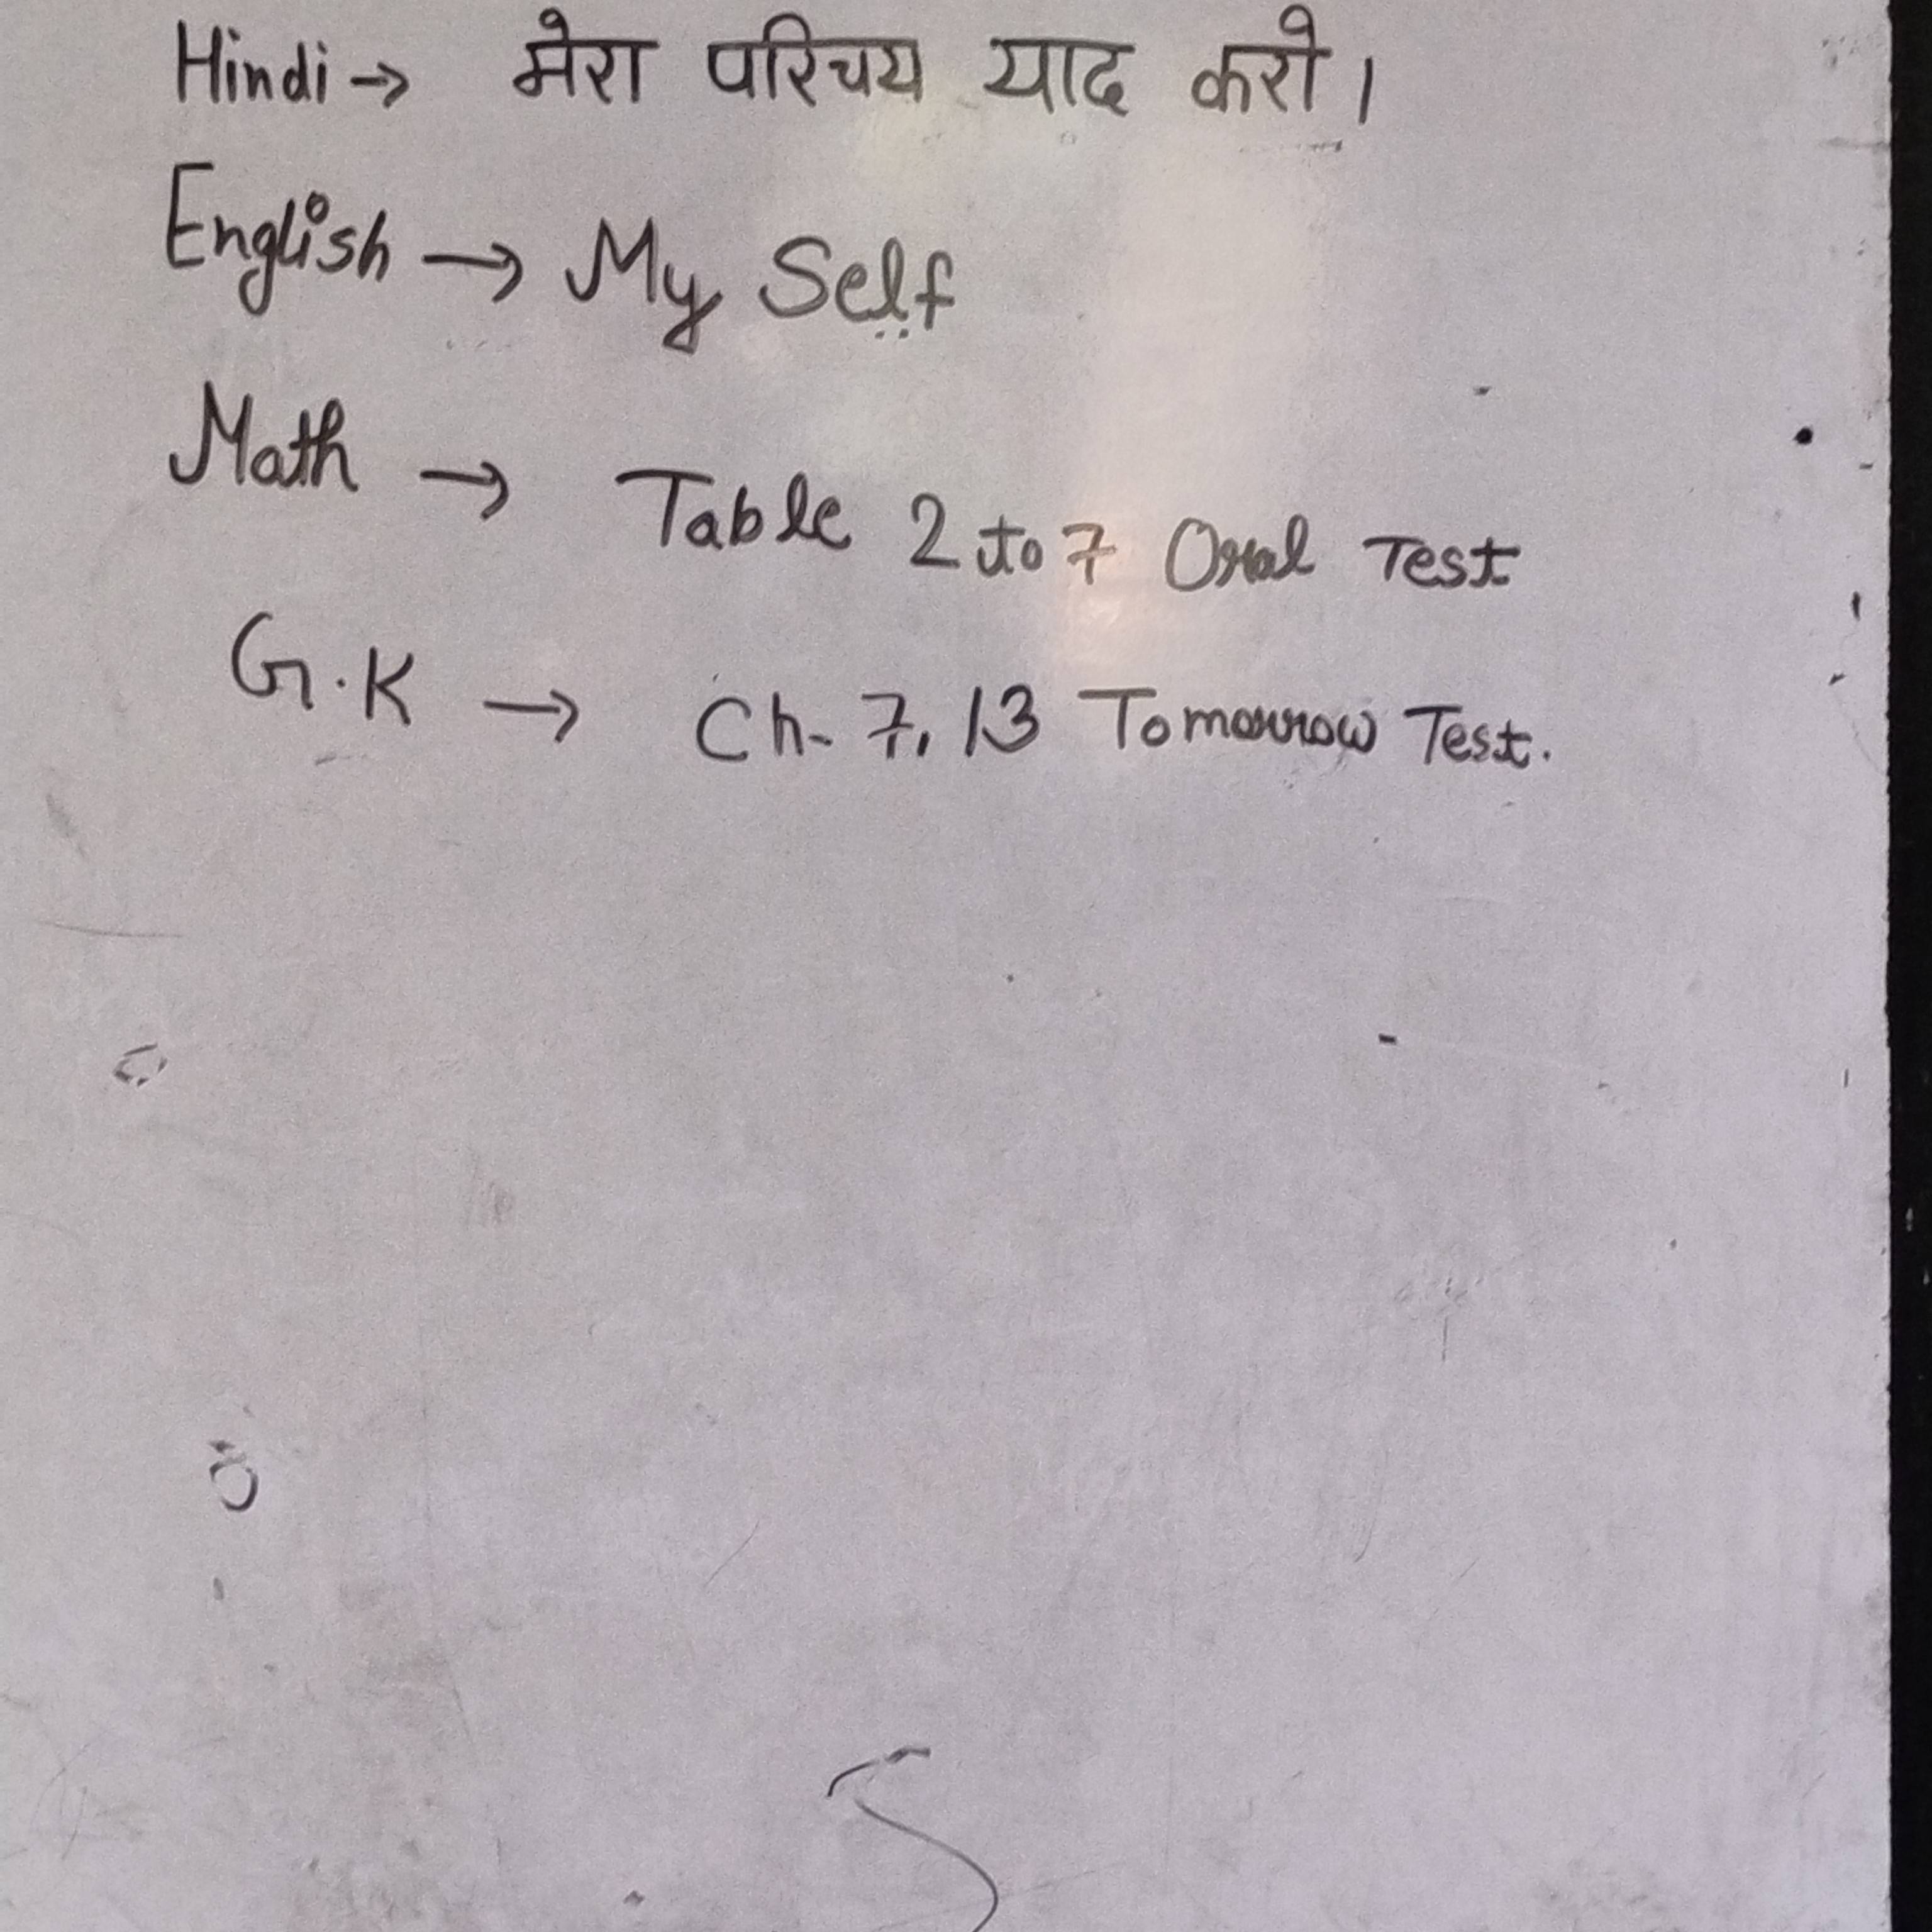 Hindi → मेरा परिचय याद करो।
English → My Self
Math → Table 2 to 7 Oral Test
G.K → Ch- 7, 13 Tomorrow Test.